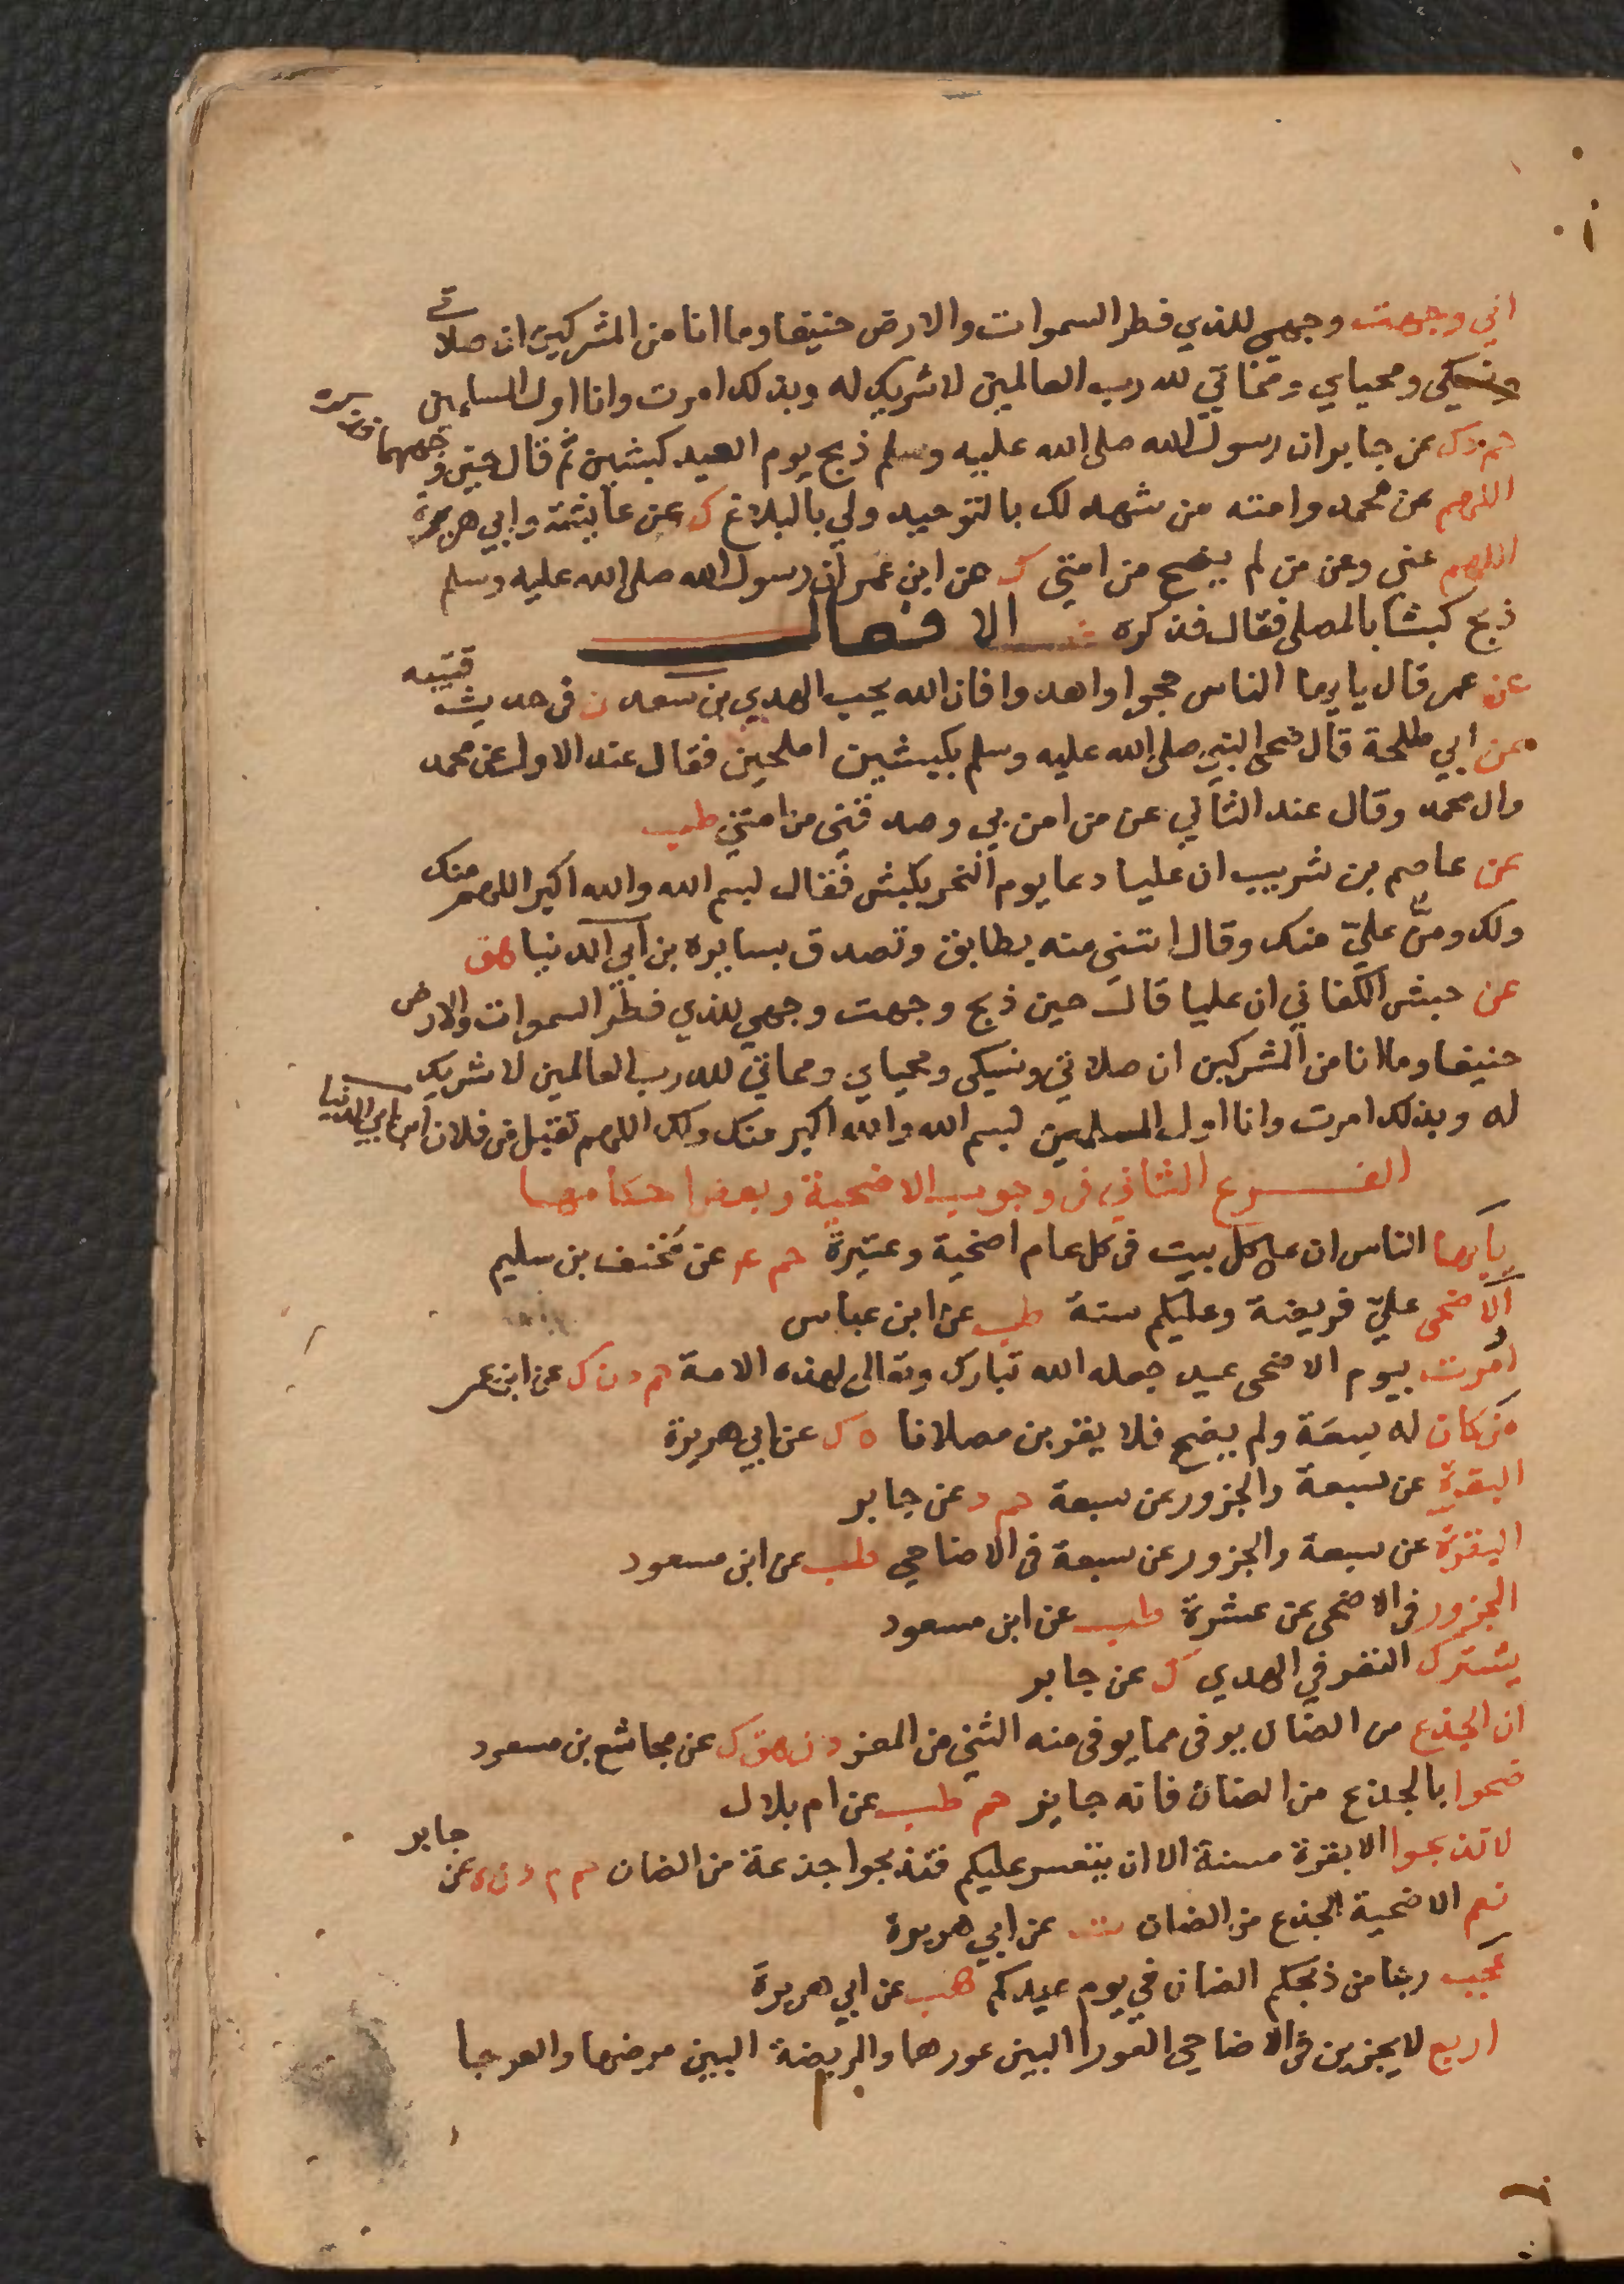 اني وجهت وجهي للذي فطر السموات والارض حنيفا وما انا من المشركين ان صلاتي
ونسكي ومحياي ومماتي لله رب العالمين لا شريك له وبذلك امرت وانا اول المسلمين
حم د ك عن جابر ان رسول الله صلى الله عليه وسلم ذبح يوم العيد كبشين ثم قال حين وجههما فذكره
اللهم عن محمد وامته من شهد لك بالتوحيد ولي بالبلاغ ك عن عائشة وابي هريرة
اللهم عني وعن من لم يضح من امتي ك عن ابن عمر ان رسول الله صلى الله عليه وسلم
ذبح كبشا بالمصلى فقال فذكره الافعال
عن عمر قال يا ايها الناس حجوا واهدوا فان الله يحب الهدي بن سعد ن في حديث قتيبه
عن ابي طلحة قال ضحى النبي صلى الله عليه وسلم بكبشين املحين فقال عند الاول عن محمد
وال محمد وقال عند الثاني عن من امن بي وصدقني من امتي طب
عن عاصم بن شريب ان عليا دعا يوم النحر بكبش فقال لبسم الله والله اكبر اللهم منك
ولك ومن علي منك وقال ائتني منه بطابق وتصدق بسايره بن ابي الدنيا هق
عن حبش الكناني ان عليا قال حين ذبح وجهت وجهي للذي فطر السموات والارض
حنيفا وما انا من المشركين ان صلاتي ونسكي ومحياي ومماتي لله رب العالمين لا شريك
له وبذلك امرت وانا اول المسلمين لبسم الله والله اكبر منك ولك اللهم تقبل من فلان ابن ابي الدنيا
الفرع الثاني في وجوب الاضحية وبعض احكامها
يا ايها الناس ان على كل بيت في كل عام اضحية وعتيرة حم عد عن مخنف بن سليم
الاضحى علي فريضة وعليكم سنة طب عن ابن عباس
امرت بيوم الاضحى عيد جعله الله تبارك وتعالى لهذه الامة حم د ن ك عن ابن عمر
من كان له سعة ولم يضح فلا يقربن مصلانا ه ك عن ابي هريرة
البقرة عن سبعة والجزور عن سبعة حم د عن جابر
البقرة عن سبعة والجزور عن سبعة في الاضاحي طب عن ابن مسعود
الجزور في الاضحى عن عشرة طب عن ابن مسعود
يشترك النفر في الهدي ك عن جابر
ان الجذع من الضان يوفى مما يوفى منه الثني من المعز د ن هق ك عن مجاشع بن مسعود
ضحوا بالجذع من الضان فانه جايز حم طب عن ام بلال
لا تذبحوا الا بقرة مسنة الا ان يتعسر عليكم فتذبحوا جذعة من الضان حم م د ن ه عن جابر
نعم الاضحية الجذع من الضان ت عن ابي هريرة
عجب ربنا من ذبحكم الضان في يوم عيدكم هب عن ابي هريرة
اربع لا يجزين في الاضاحي العورا البين عورها والمريضة البين مرضها والعرجا